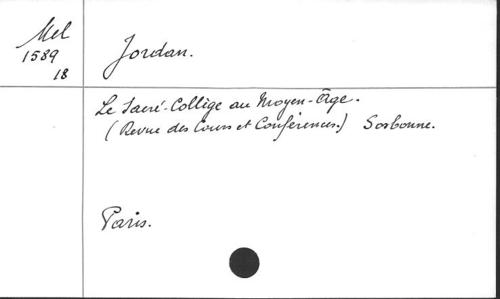 Mel
1589
18
Jordan.
Le Sacré-Collège au Moyen-Âge.
(Revue des Cours et Conférences.) Sorbonne.
Paris.